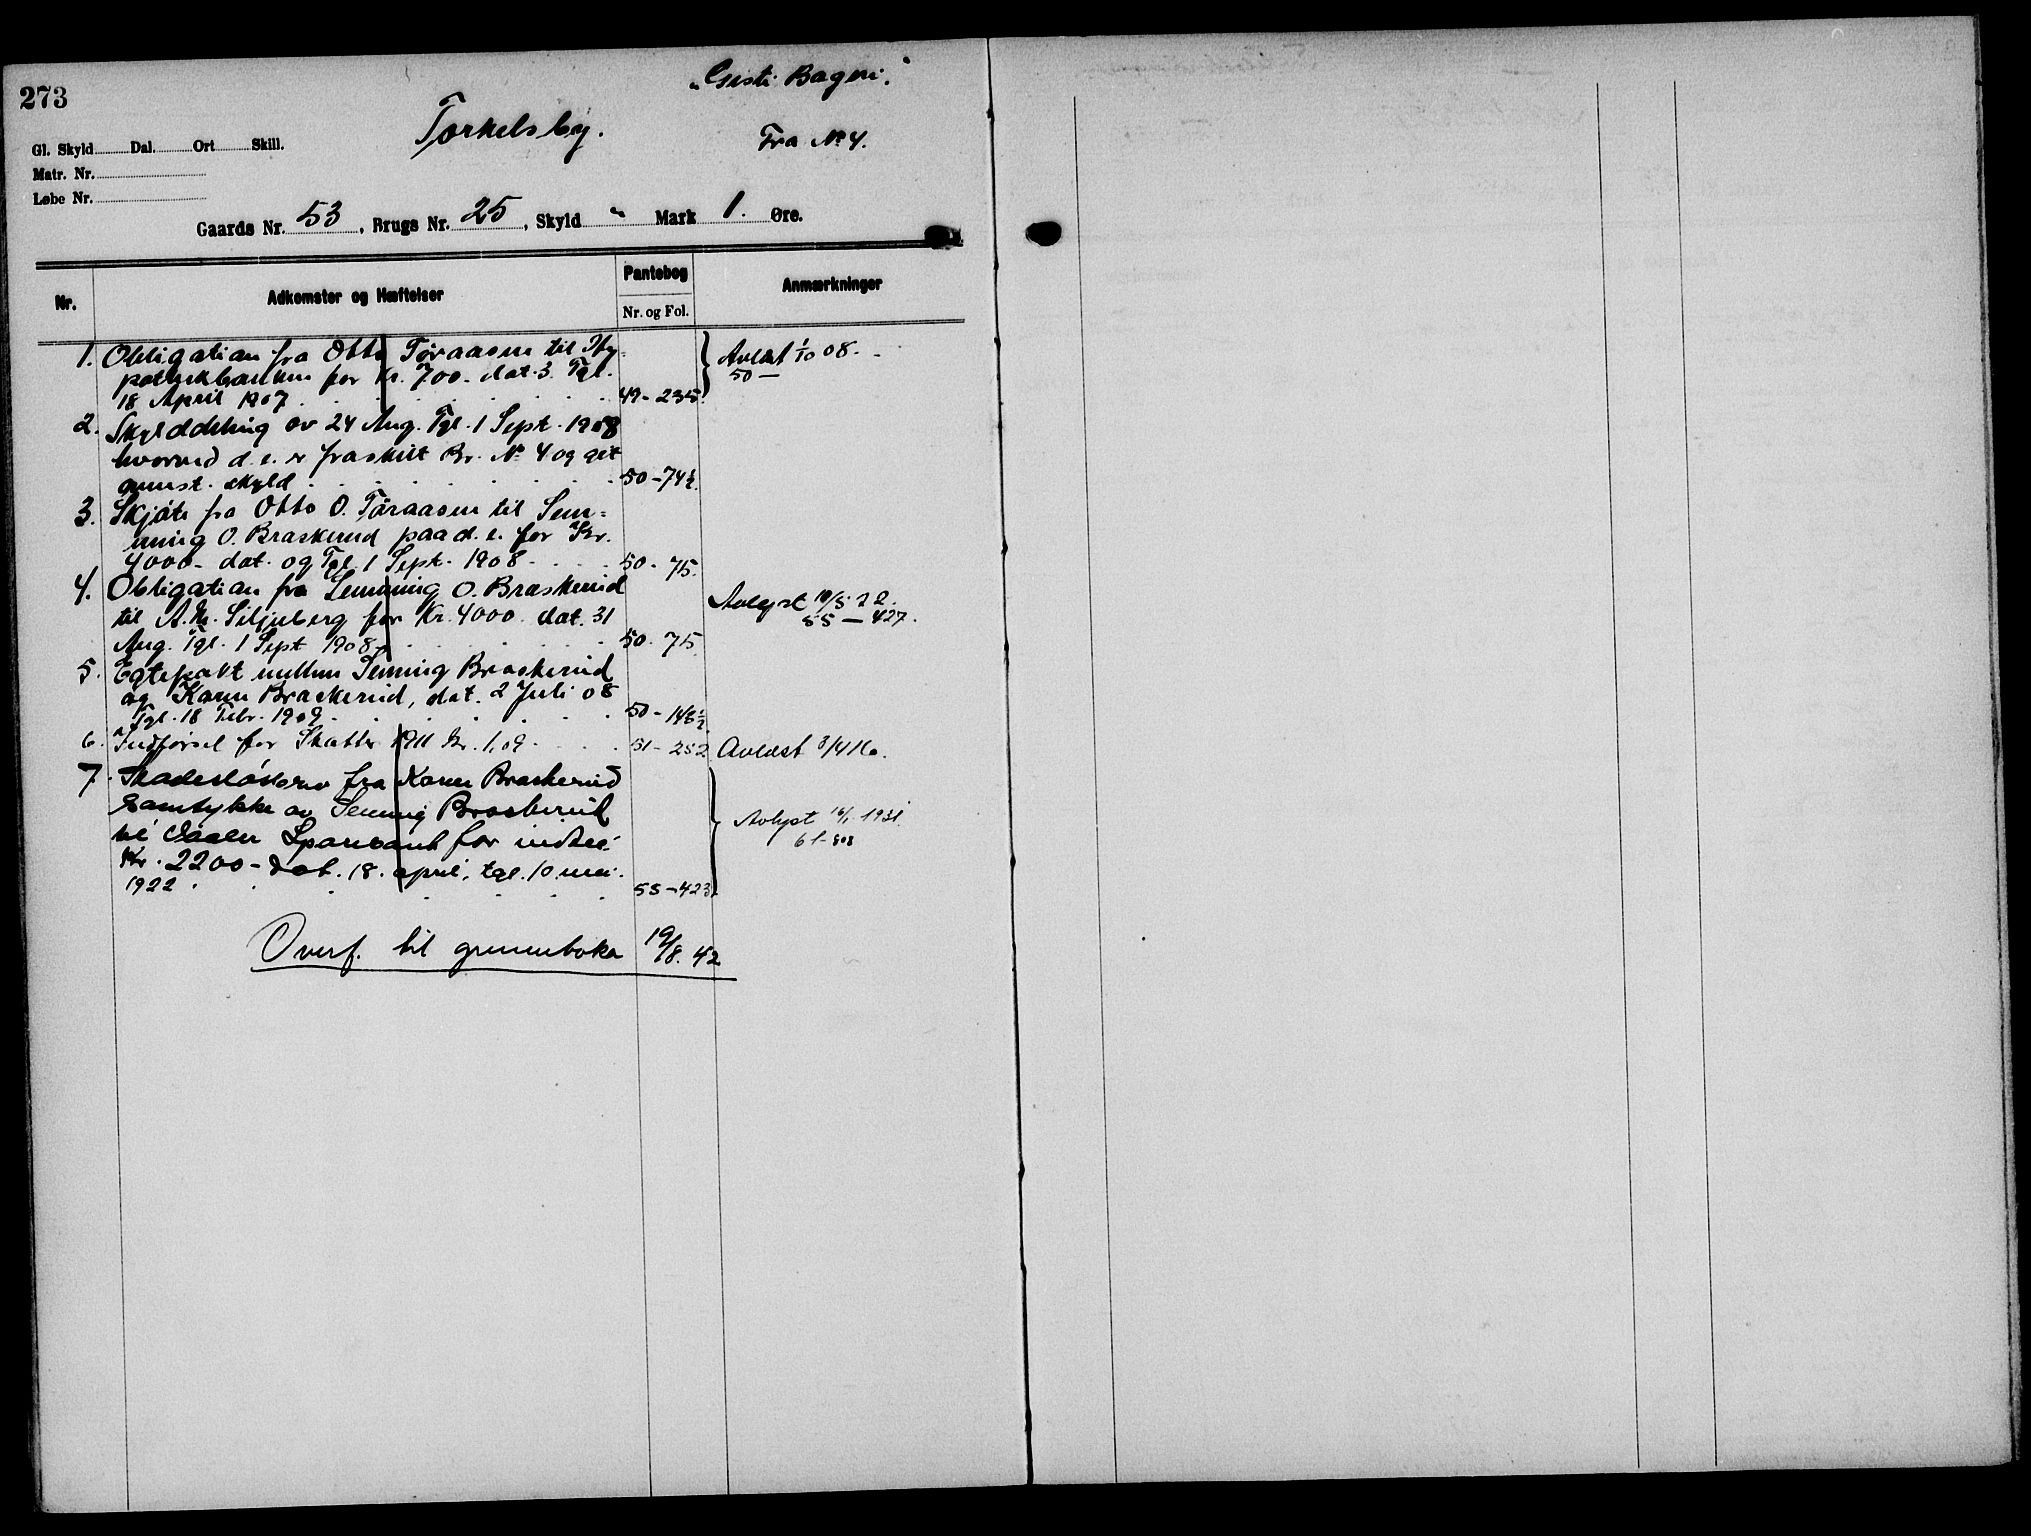 273
"Gisti Bageri."
Torkelsby.
Fra No 4.
Gl. Skyld Dal. Ort Skill.
Matr. Nr.
Løbe Nr.
Gaards Nr. 53, Brugs Nr. 25, Skyld " Mark 1. Øre.
Nr. Adkomster og Hæftelser Pantebog Anmærkninger
Nr. og Fol.
1. Obligation fra Otto Toraasen til Hy- Avlæst 1/10 08.
pothekbanken for Kr. 700. dat. 3. Tgl. 50 —
18 April 1907 49 - 235.
2. Skylddeling av 24 Aug. Tgl. 1 Sept. 1908
hvorved d. e. er fraskilt Br. No 4 og git
anmst. skyld 50 - 74 1/2.
3. Skjøte fra Otto O. Toraasen til Sem-
ming O. Braskerud paa d. e. for Kr.
4000 - dat. og Tgl. 1 Sept. 1908 50 - 75.
4. Obligation fra Semming O. Braskerud
til A. M. Siljuberg for Kr. 4000. dat. 31 Avlyst 10/5 22.
Aug. Tgl. 1 Sept 1908 50 - 75. 55 — 427.
5. Egtepakt mellem Semming Braskerud
og Karen Braskerud, dat. 2 Juli 08
Tgl. 18 Febr. 1909 50 - 148 1/2
6. Indførsel for Skatter 1911 Kr. 1,09. 51 - 252 Avlæst 3/4 16.
7. Skadesløsbrev fra Karen Braskerud
samtykke av Semming Braskerud Avlyst 16/1 1931.
til Vaaler Sparebank for indtil 61 - 808
Kr. 2200 - dat. 18. april, tgl. 10. mai
1922. 55 - 423
Overf. til grunnboka 19/8. 42